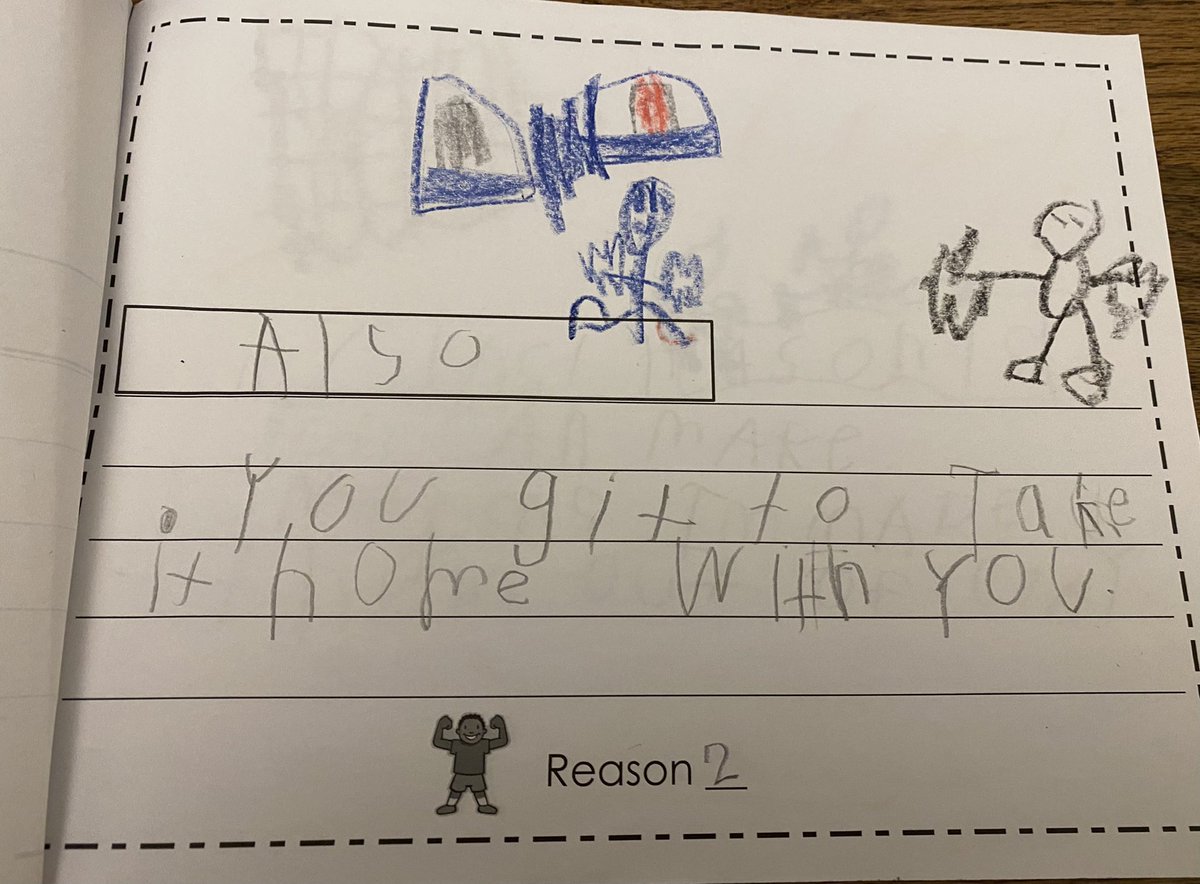 Also
.You git to Take
It home With you.
Reason 2